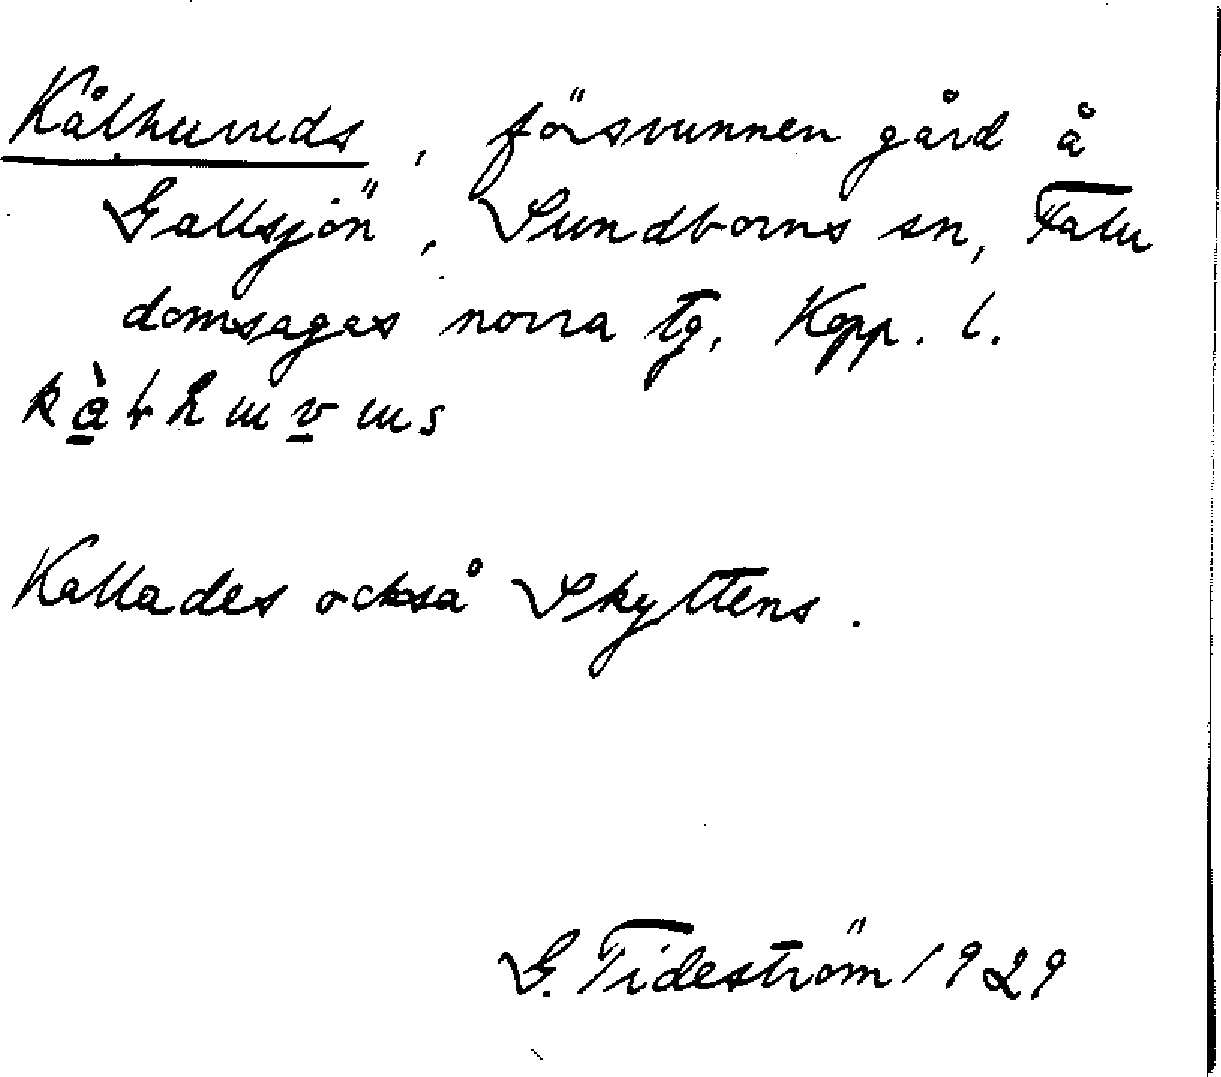 Kålhuvuds, försvunnen gård å
Gallsjön, Sundborns sn, Falu
domsagas norra tg, Kopp. l.
kàłhɯvɯs
Kallades också Skyttens.
G. Tideström 1929